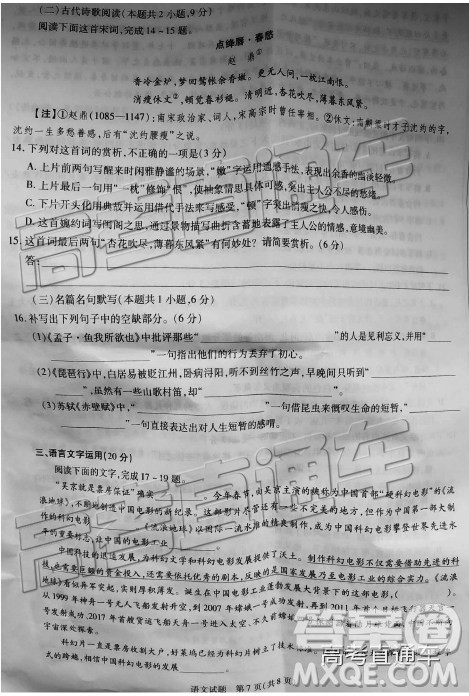 (二)古代诗歌阅读(本题共2小题,9分)
阅读下面这首宋词,完成14～15题。
点绛唇·春愁
赵鼎①
香冷金炉,梦回鸳帐余香嫩。更无人问,一枕江南恨。
消瘦休文②,顿觉春衫褪。清明近,杏花吹尽,薄暮东风紧。
【注】①赵鼎(1085—1147):南宋政治家、词人,宋高宗时曾任宰相。②休文:南朝梁时才子沈约的字,
沈约一生多愁善感,后有“沈约腰瘦”之说。
14.下列对这首词的赏析,不正确的一项是(3分)
A.上片前两句写醒来时闲雅静谧的场景,“嫩”字运用通感手法,表现出余香的幽淡轻微。
B.上片最后一句用“一枕”修饰“恨”,使抽象情思具体可感,突出主人公不尽的愁绪。
C.下片开头化用典故并运用借代手法来写感受,“顿”字突出情瘦之快,令人感伤。
D.这首婉约词写闺阁之思,通过景物描写曲折含蓄地表露了主人公的情意,意境幽美。
15.这首词最后两句“杏花吹尽,薄暮东风紧”有何妙处?请简要赏析。(6分)
答:
(三)名篇名句默写(本题共1小题,6分)
16.补写出下列句子中的空缺部分。(6分)
(1)《孟子·鱼我所欲也》中批评那些“ ”的人是见利忘义,并用“
”一句指出他们的行为丢弃了初心。
(2)《琵琶行》中,白居易被贬江州,卧病浔阳,听不到丝竹之声,早晚间只听到“
”。虽然有一些山歌村笛,却“ ”。
(3)苏轼《赤壁赋》中,“ ”一句借昆虫来慨叹生命的短暂,
“ ”一句直接表达出对人生短暂的感喟。
三、语言文字运用(20分)
阅读下面的文字,完成17～19题。
“吴京就是票房保证”确实 。今年春节,由吴京主演的被称为中国首部“硬科幻电影”的《流
浪地球》,不断地创造中国电影的观影奇迹。这部影片尽管还有一些不完美的地方,但作为中国本土制
作的科幻电影 ,《流浪地球》以国际一流水准的精良制作,成为中国科幻电影攀登世界先进水
平的重要标志,为中国电影
中国科技的迅速发展,为科幻文学和科幻电影提供了沃土。制作科幻电影不仅需要借助先进的科
技,需要巨额的资金投入,还需要依托优秀的剧本,反映的是国家发展乃至电影工业的综合实力。《流
浪地球》看似异军突起,实则 。诞生在中国电影工业蓬勃发展大背景下的
从1999年神舟一号无人飞船发射升空,到2007年嫦娥一号成功发射,再到2011年首个目标飞行器天宫一
号发射成功,2017年首艘货运飞船天舟一号成功发射
宙深处探索。
科幻片一直是票房收割大户,好莱坞已经为
式的跨越,相信中国科幻电影的发展
语文试题 第7页(共8页)
高考直通车